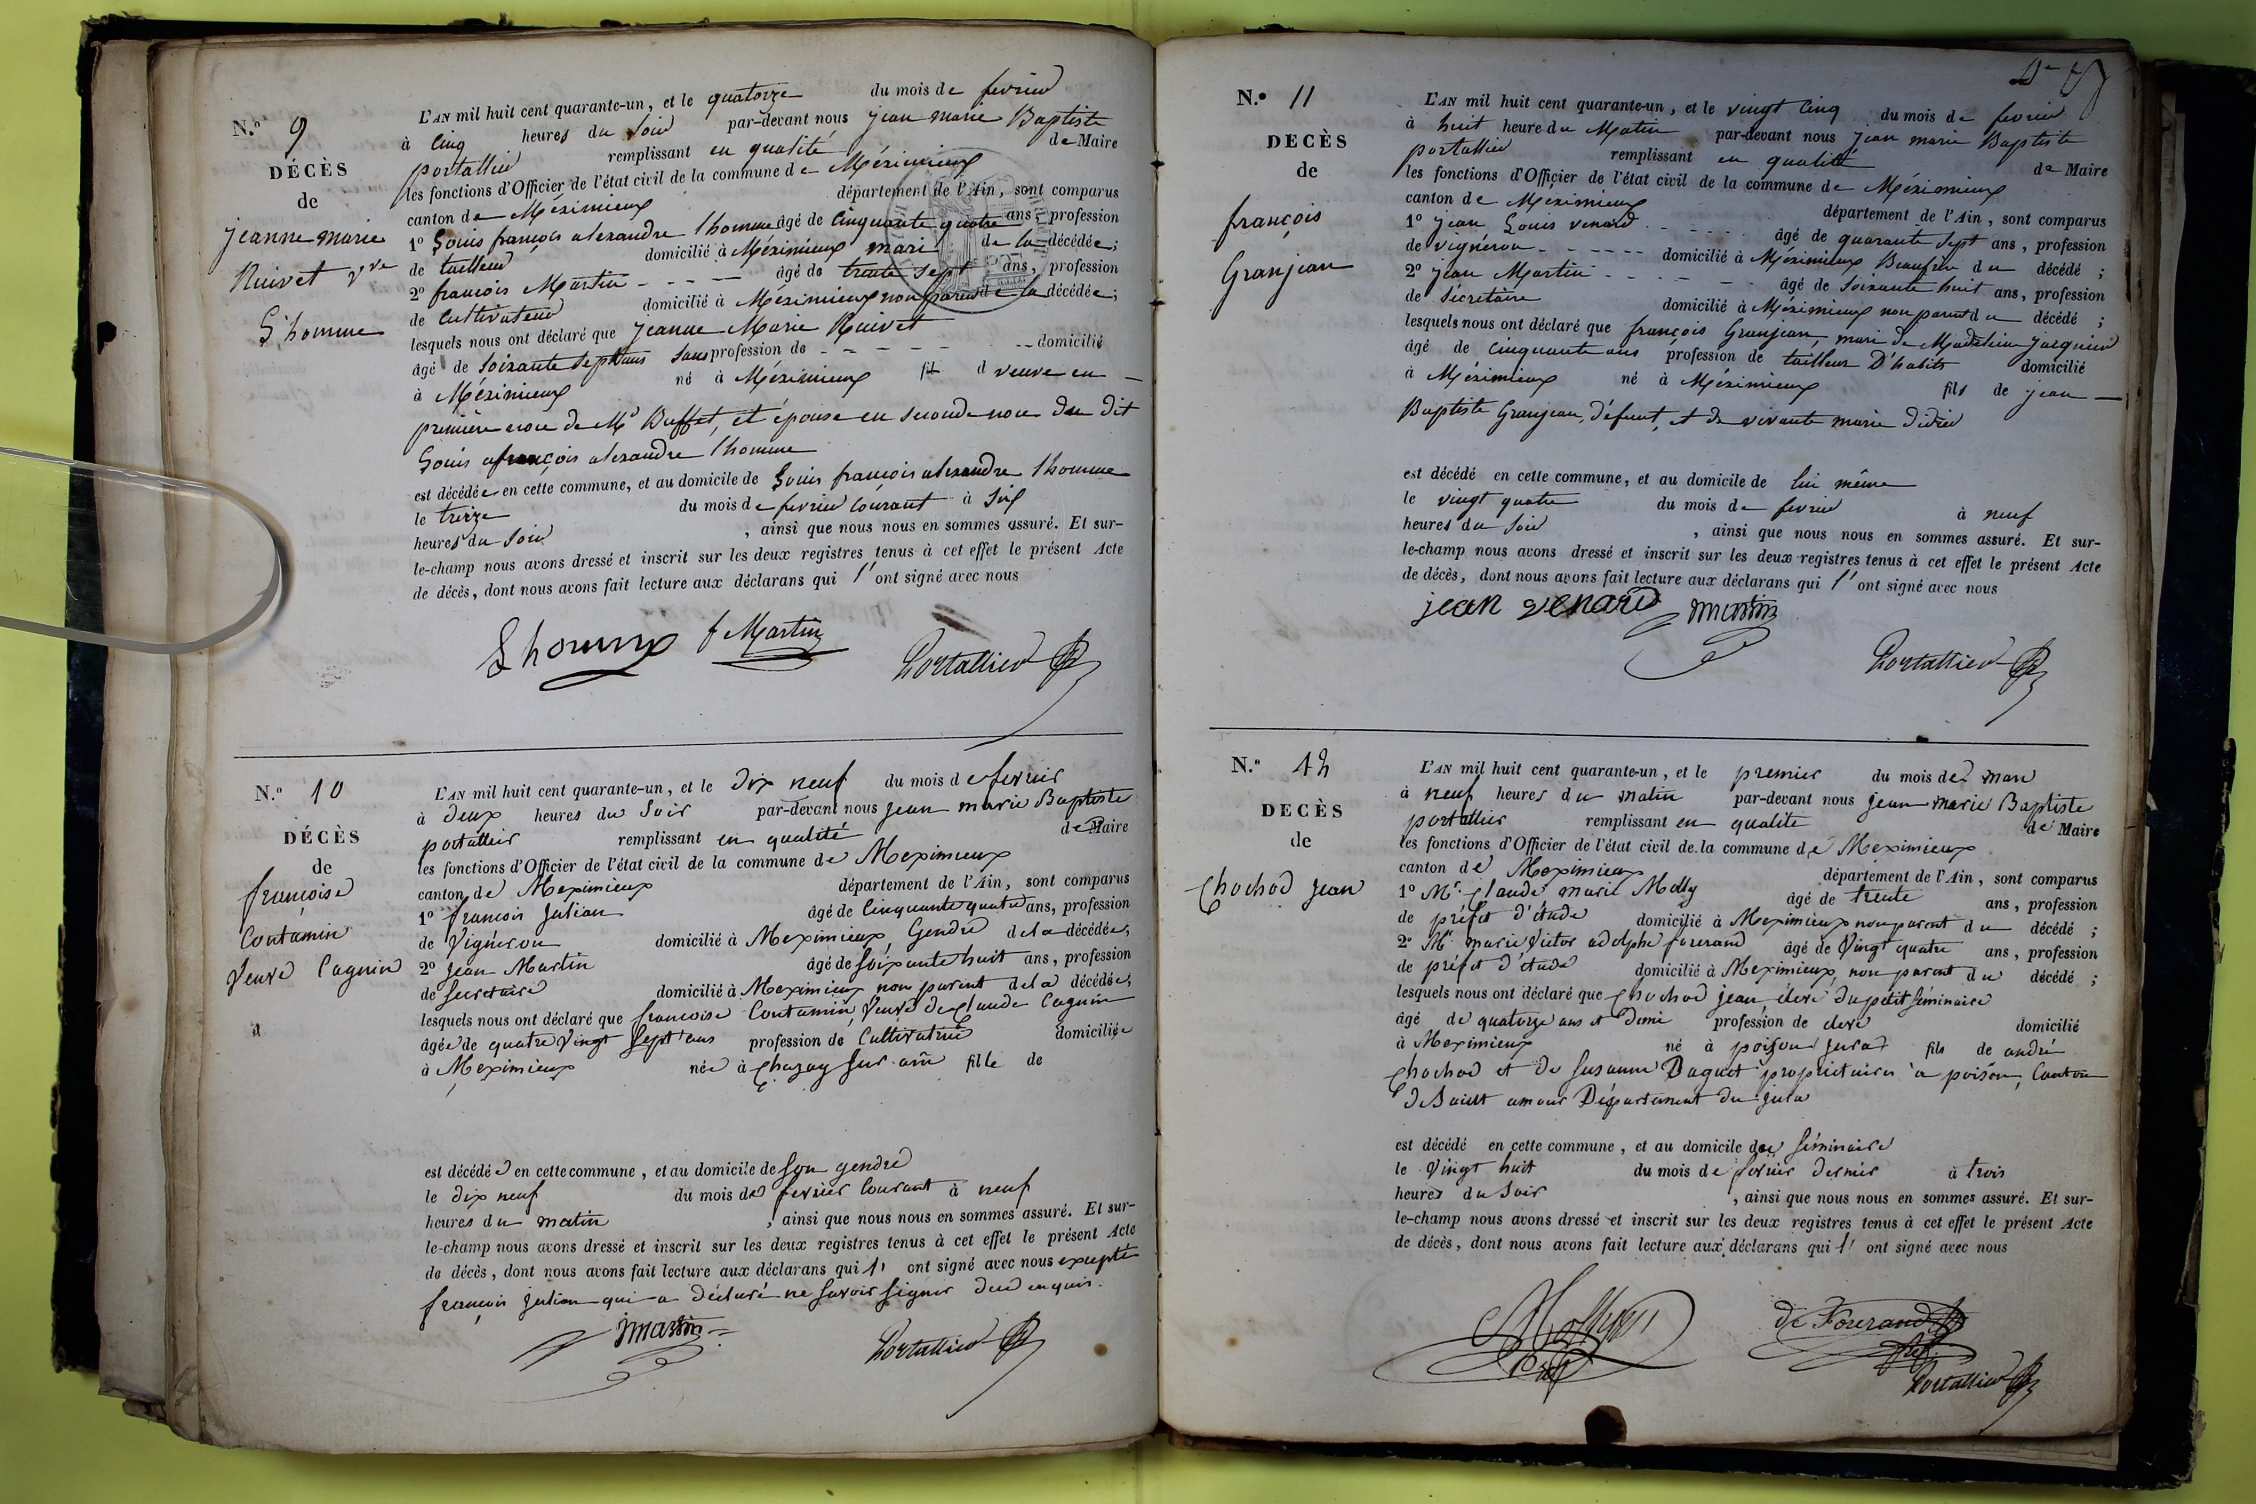 N.º 9
DÉCÈS
de
jeanne marie
Ruivet vve
L'homme
L'AN mil huit cent quarante-un, et le quatorze du mois de fevrier
à cinq heures du soir par-devant nous jean marie Baptiste
portallier remplissant en qualité de Maire
les fonctions d'Officier de l'état civil de la commune de Méximieux
canton de Méximieux département de l'Ain, sont comparus
1º Louis françois alexandre l'homme âgé de cinquante quatre ans, profession
de tailleur domicilié à Méximieux mari de la décédée;
2º françois Martin âgé de trente sept ans, profession
de cultivateur domicilié à Méximieux non parent de la décédée;
lesquels nous ont déclaré que jeanne Marie Ruivet
âgé de soixante sept ans sans profession de domicilié
à Méximieux né à Méximieux fil d veuve en
premiere noce de Mr Buffet, et épouse en seconde noce du dit
Louis françois alexandre l'homme
est décédée en cette commune, et au domicile de Louis françois alexandre l'homme
le treize du mois de fevrier courant à six
heures du soir , ainsi que nous nous en sommes assuré. Et sur-
le-champ nous avons dressé et inscrit sur les deux registres tenus à cet effet le présent Acte
de décès, dont nous avons fait lecture aux déclarans qui l'ont signé avec nous
Lhomme f Martin
Portallier
N.º 10
DÉCÈS
de
françoise
Contamin
Veuve Cagnin
L'AN mil huit cent quarante-un, et le dix neuf du mois de fevrier
à deux heures du soir par-devant nous jean marie Baptiste
portallier remplissant en qualité de Maire
les fonctions d'Officier de l'état civil de la commune de Meximieux
canton de Meximieux département de l'Ain, sont comparus
1º françois julian âgé de cinquante quatre ans, profession
de Vigneron domicilié à Meximieux Gendre de la décédée;
2º jean Martin âgé de soixante huit ans, profession
de secretaire domicilié à Meximieux non parent de la décédée;
lesquels nous ont déclaré que françoise Contamin Veuve de Claude Cagnin
âgée de quatre Vingt sept ans profession de Cultivatrice domiciliée
à Meximieux née à Chazay sur ain fille de
est décédée en cette commune, et au domicile de son gendre
le dix neuf du mois de fevrier courant à neuf
heures du matin , ainsi que nous nous en sommes assuré. Et sur-
le-champ nous avons dressé et inscrit sur les deux registres tenus à cet effet le présent Acte
de décès, dont nous avons fait lecture aux déclarans qui l' ont signé avec nous excepté
françois julian qui a déclaré ne savoir signer de ce enquis.
jmartin
Portallier
N.º 11
DECÈS
de
françois
Granjean
L'AN mil huit cent quarante-un, et le vingt cinq du mois de fevrier
à huit heure du Matin par-devant nous jean marie Baptiste
portallier remplissant en qualité de Maire
les fonctions d'Officier de l'état civil de la commune de Méximieux
canton de Méximieux département de l'Ain, sont comparus
1º jean Louis venard âgé de quarante sept ans, profession
de vigneron domicilié à Méximieux Beaufrère du décédé;
2º jean Martin âgé de soixante huit ans, profession
de secretaire domicilié à Méximieux non parent du décédé;
lesquels nous ont déclaré que françois Granjean, mari de Madeleine jacquier
âgé de cinquante ans profession de tailleur D'habits domicilié
à Méximieux né à Méximieux fils de jean
Baptiste Granjean, défunt, et de vivante marie didier
est décédé en cette commune, et au domicile de lui même
le vingt quatre du mois de fevrier à neuf
heures du soir , ainsi que nous nous en sommes assuré. Et sur-
le-champ nous avons dressé et inscrit sur les deux registres tenus à cet effet le présent Acte
de décès, dont nous avons fait lecture aux déclarans qui l'ont signé avec nous
jean venard jmartin
Portallier
N.º 12
DECÈS
de
Chochod jean
L'AN mil huit cent quarante-un, et le premier du mois de mars
à neuf heures du matin par-devant nous jean marie Baptiste
portallier remplissant en qualité de Maire
les fonctions d'Officier de l'état civil de la commune de Meximieux
canton de Meximieux département de l'Ain, sont comparus
1º Mr. Claude marie Molly âgé de trente ans, profession
de préfet d'étude domicilié à Meximieux non parent du décédé;
2º Mr. marie Victor adolphe forerand âgé de Vingt quatre ans, profession
de préfet d'étude domicilié à Meximieux, non parent du décédé;
lesquels nous ont déclaré que Chochod jean, élevé du petit séminaire
âgé de quatorze ans et demi profession de élevé domicilié
à Meximieux né à poisou jura fils de andré
Chochod et de Susanne Daguet propriétaires à poisou, Canton
de Saint amour Département du jura
est décédé en cette commune, et au domicile du séminaire
le Vingt huit du mois de fevrier dernier à trois
heures du soir , ainsi que nous nous en sommes assuré. Et sur-
le-champ nous avons dressé et inscrit sur les deux registres tenus à cet effet le présent Acte
de décès, dont nous avons fait lecture aux déclarans qui l' ont signé avec nous
de Forerand
Portallier